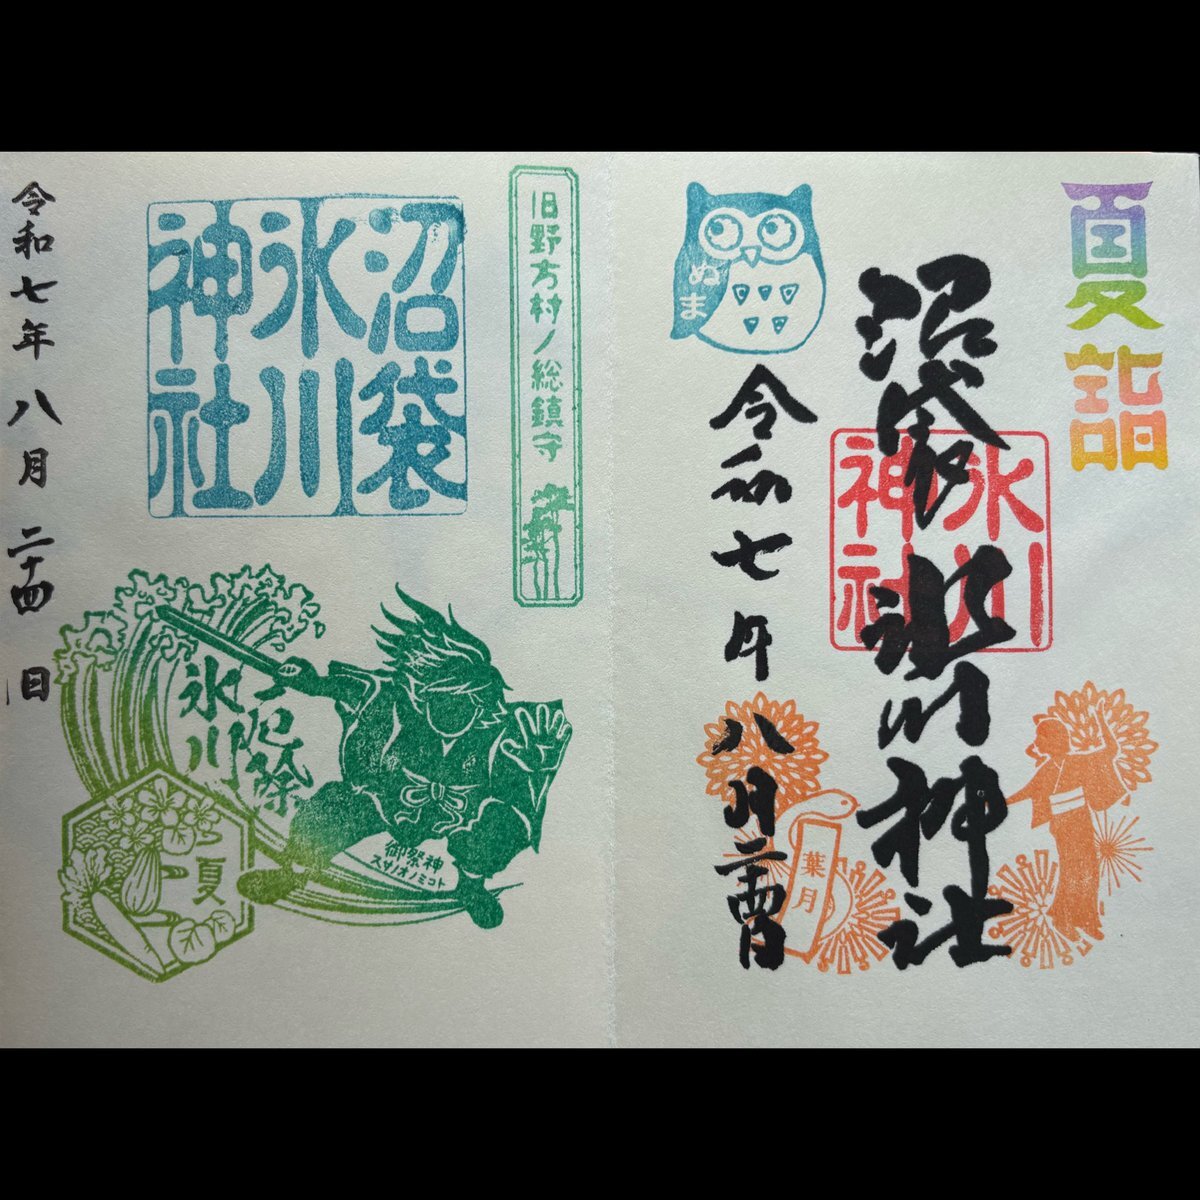 夏詣
沼袋
氷川神社
氷川
神社
ぬま
令和七年八月二十四日
葉月
旧野方村ノ総鎮守
沼袋
氷川
神社
厄除
氷川
御祭神
スサノオノミコト
夏
令和七年八月二十四日